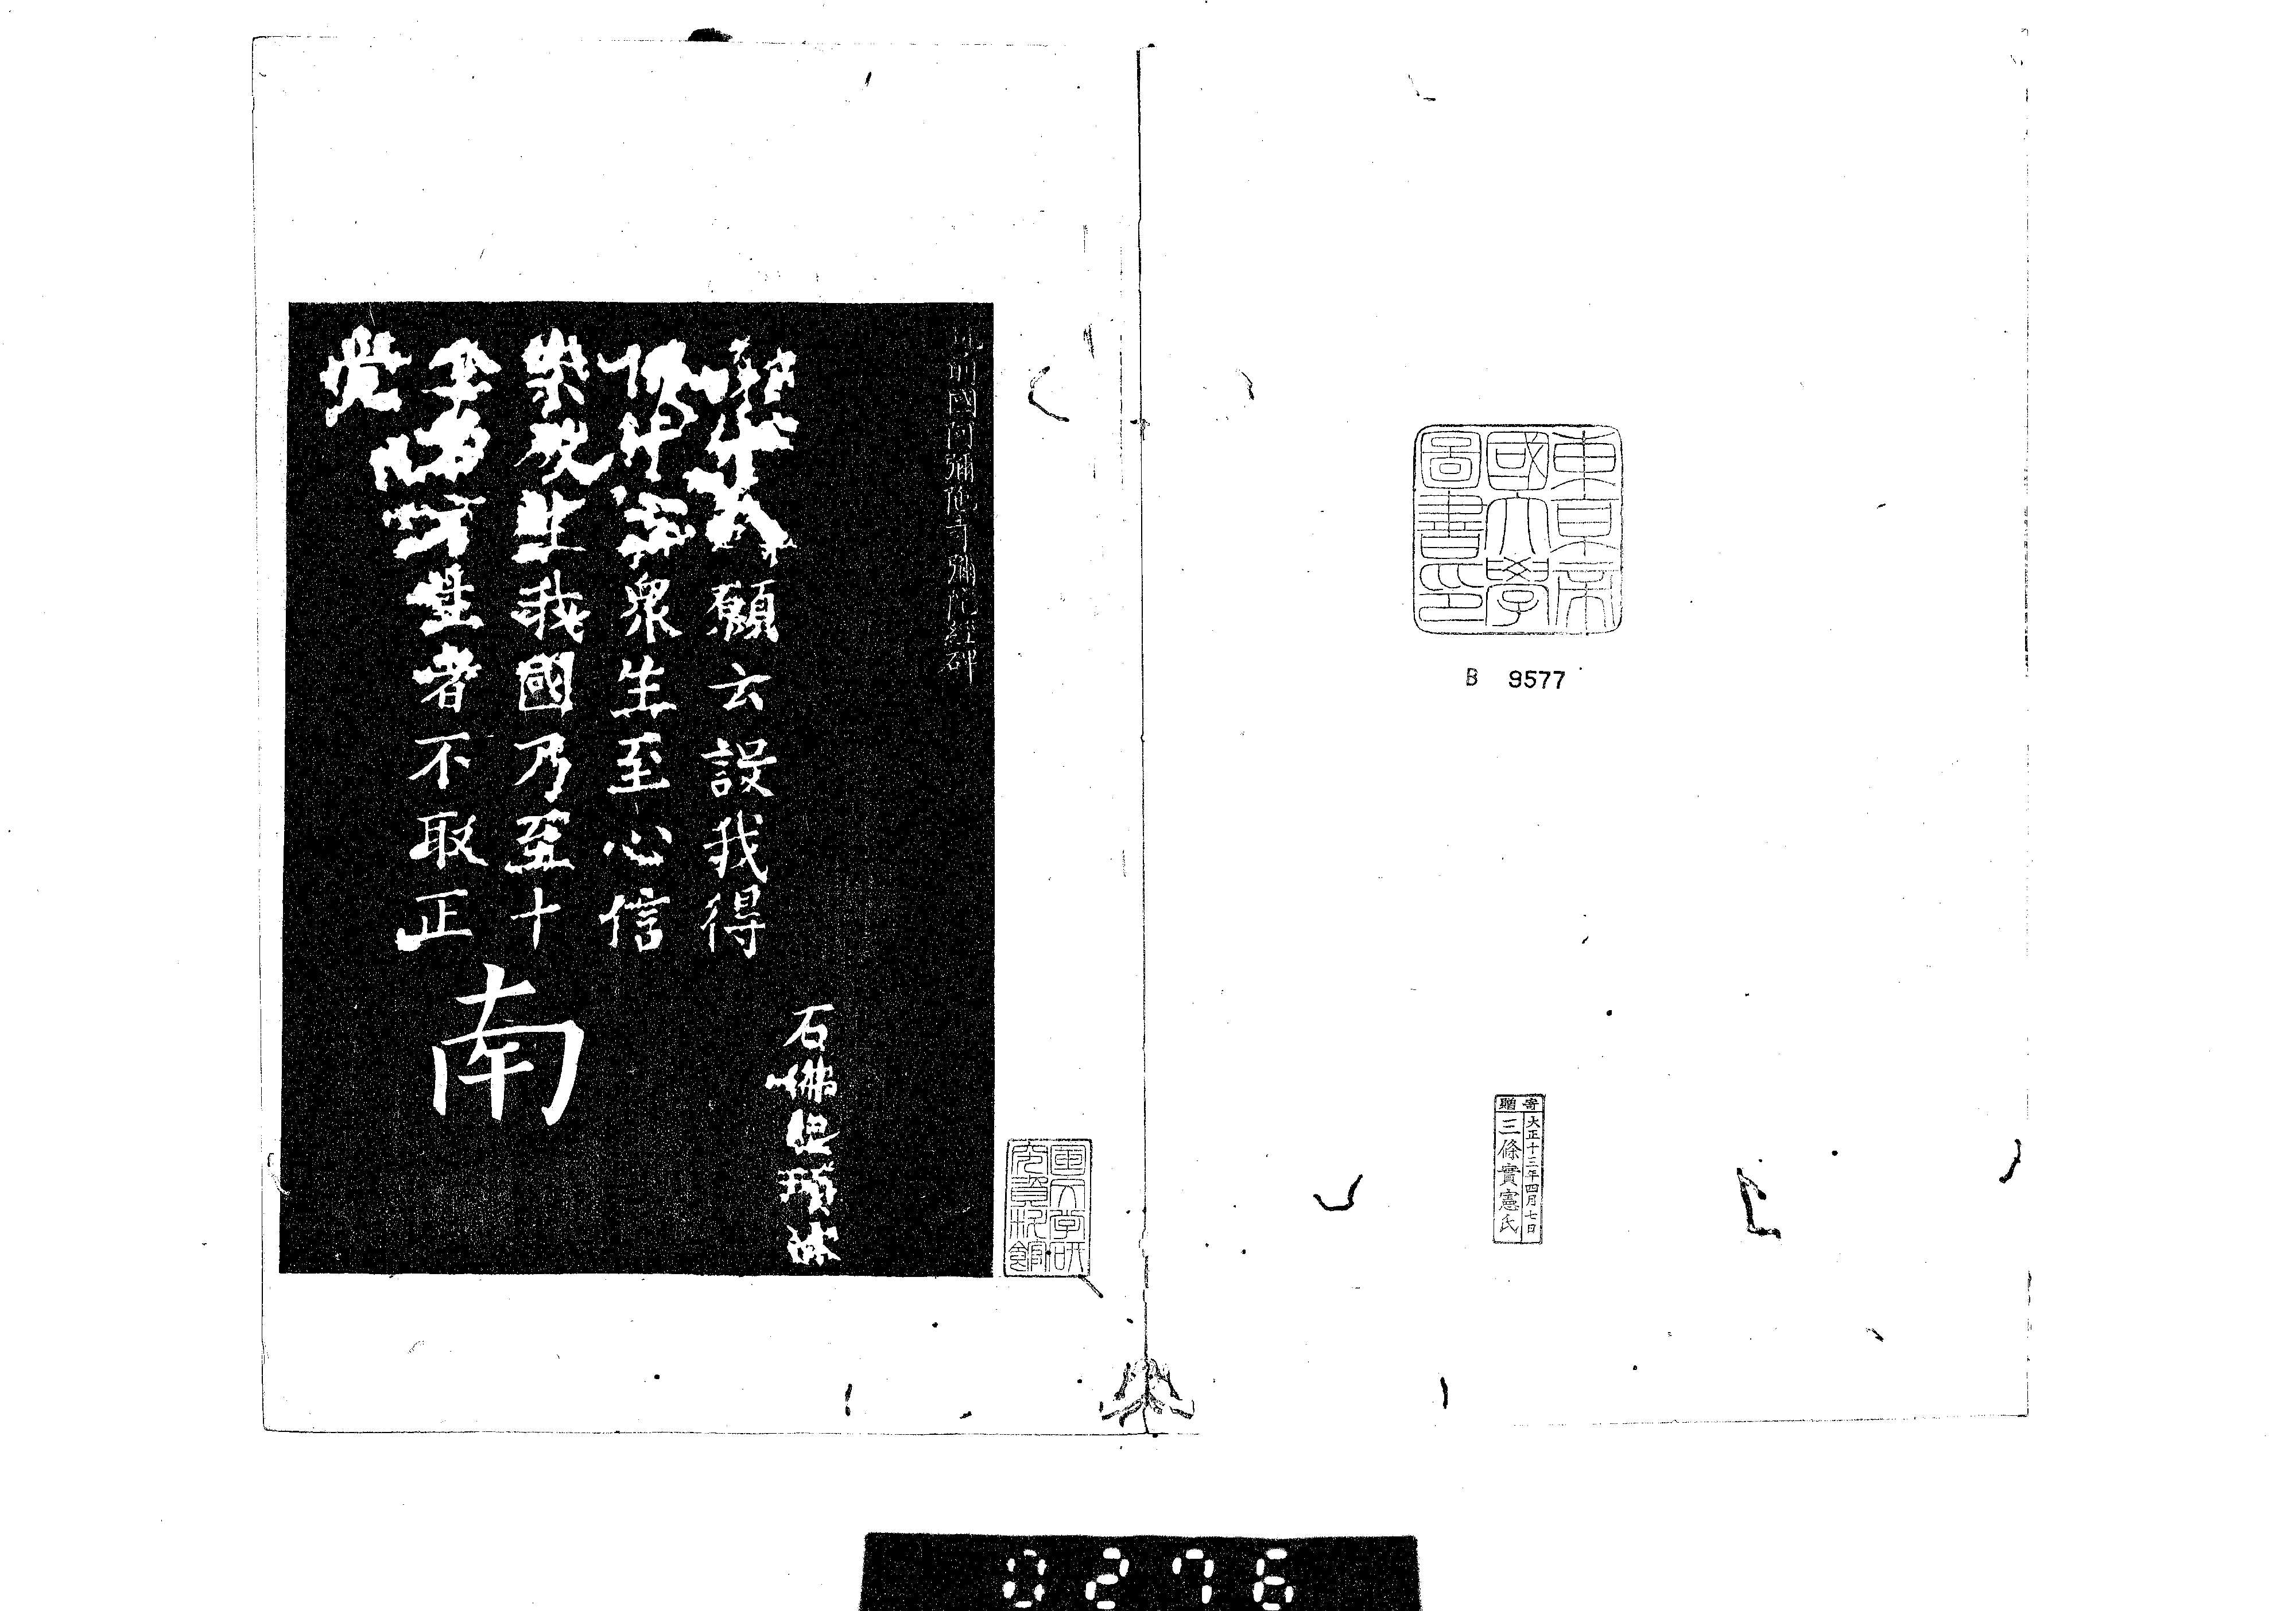 東京帝
國大學
圖書印
B 9577
寄贈
大正十三年四月七日
三條實憲氏
前國阿彌陀寺彌陀經碑
石佛
願云設我得
佛十方衆生至心信
樂欲生我國乃至十
念若 生者不取正
覺
南
0276